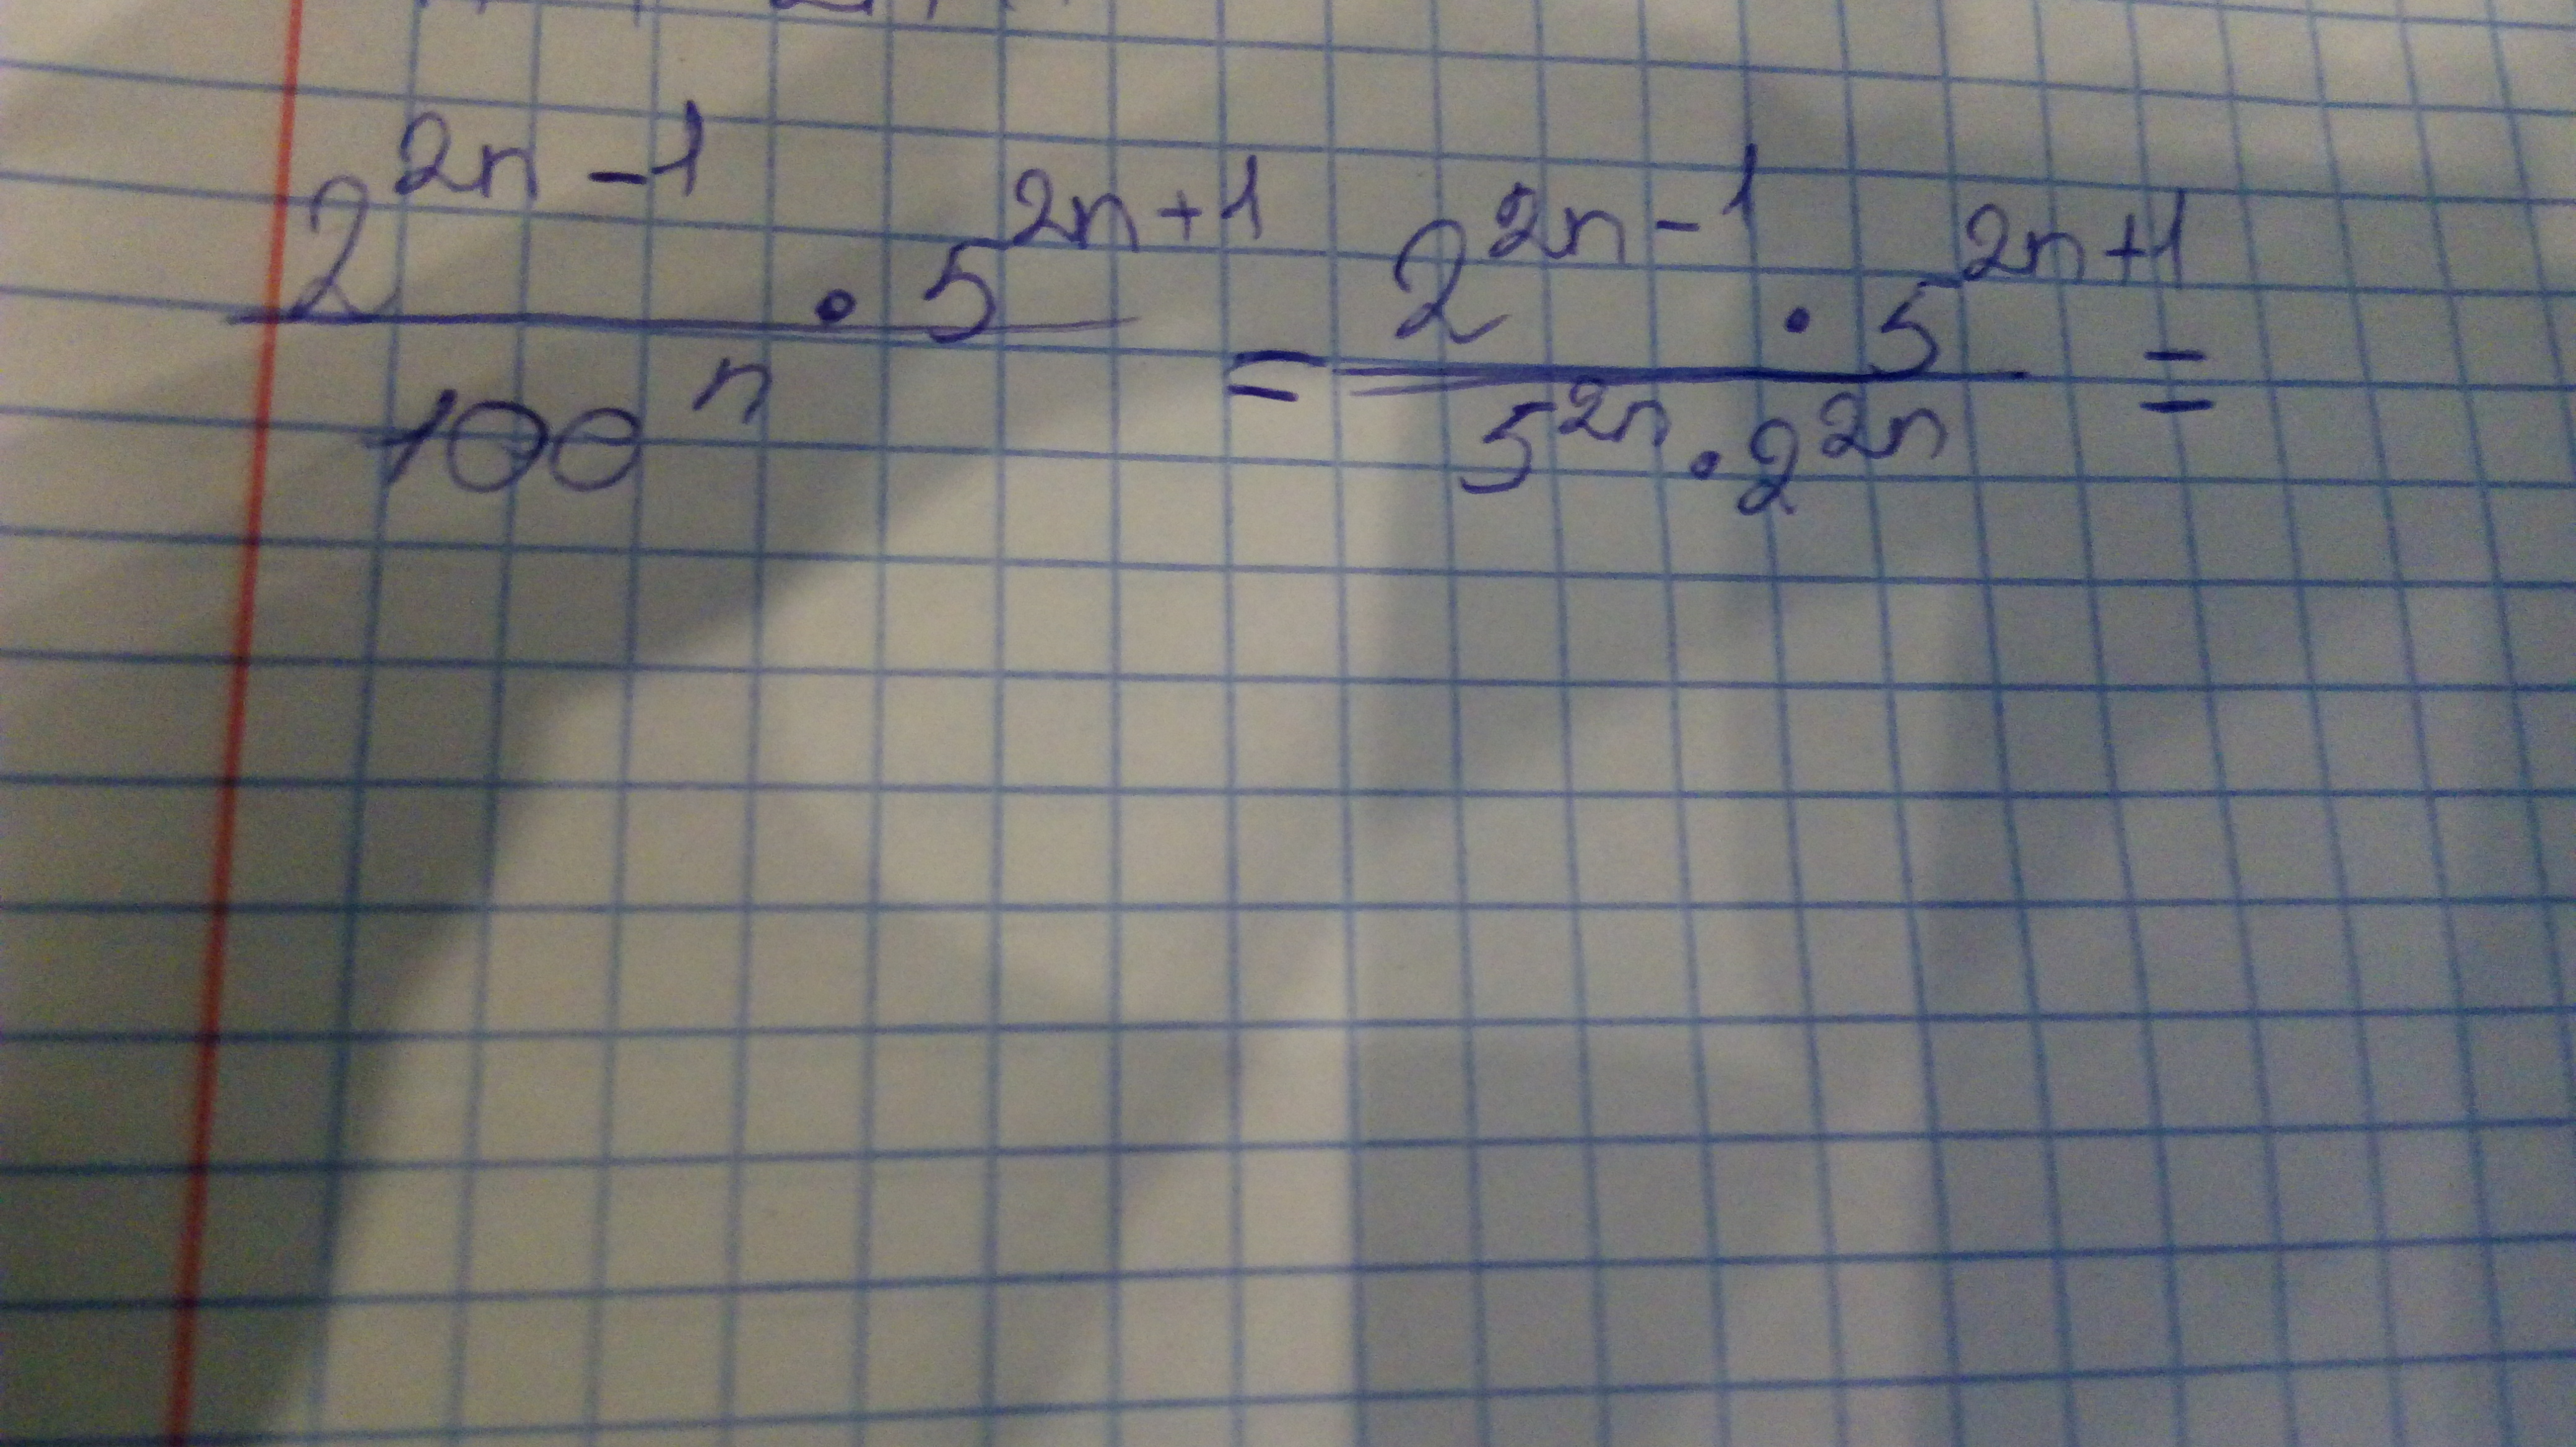 2^{2n-1} · 5^{2n+1} / 100^n = 2^{2n-1} · 5^{2n+1} / 5^{2n} · 2^{2n} =